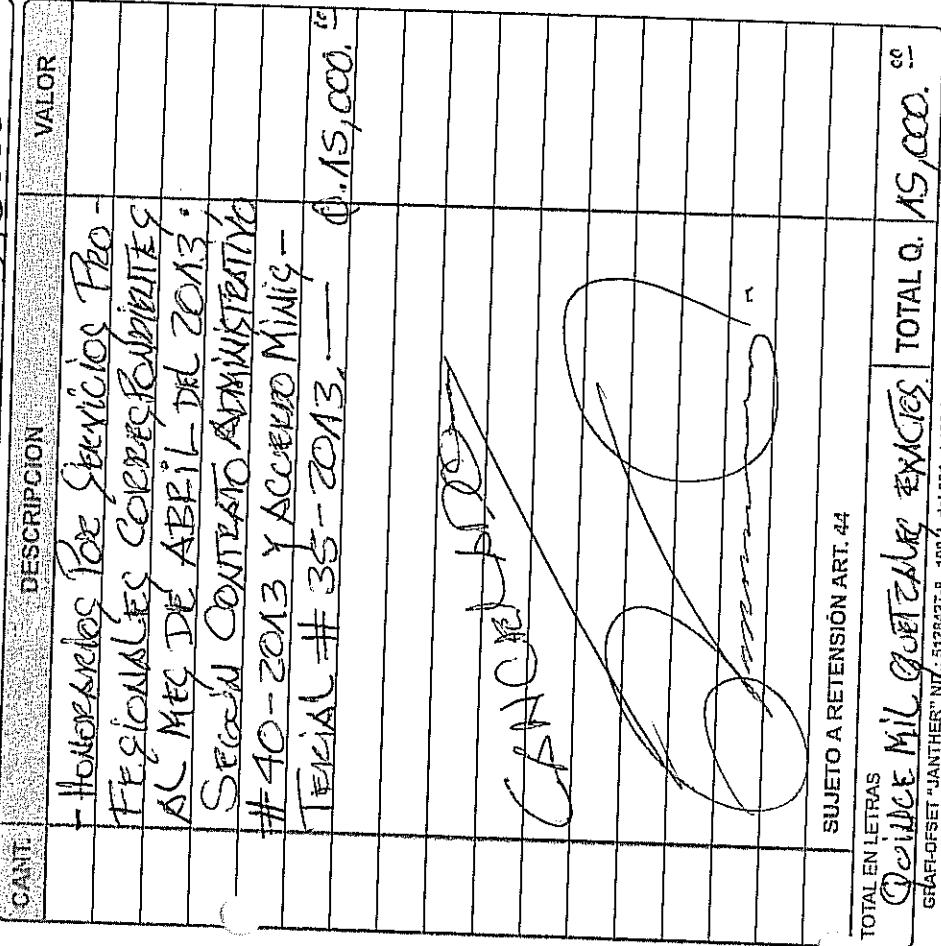 CANT. DESCRIPCION VALOR
- Honorarios Por Servicios Pro-
fesionales Correspondientes
al mes de Abril del 2013.
Según Contrato Administrativo
#40-2013 y Acuerdo Minis-
terial #35-2013.— Q.15,000.00
CANCELADO
SUJETO A RETENSIÓN ART. 44
TOTAL EN LETRAS
Quince Mil Quetzales Exactos TOTAL Q. 15,000.00
GRAFI-OFSET "JANTHER" NIT.: 5128437-8